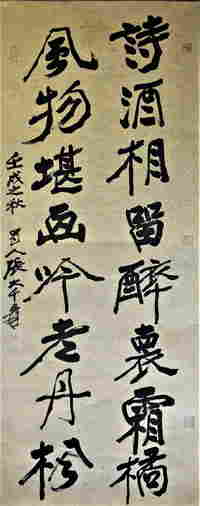 詩酒相留醉裏霜橘
風物堪画吟老丹楓
壬戌之秋 蜀人張大千爰